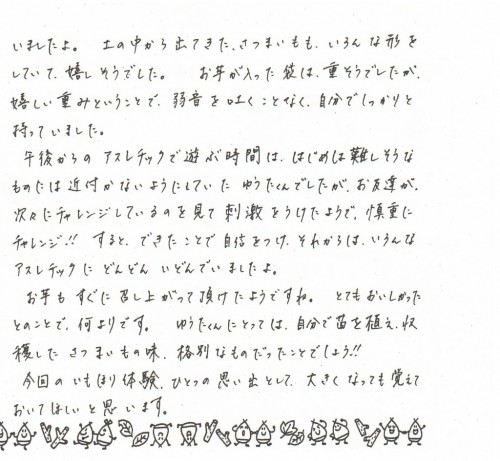 いましたよ。 土の中から出てきた、さつまいもも、いろんな形を
していて、嬉しそうでした。 お芋が入った袋は、重そうでしたが、
嬉しい重みということで、弱音を吐くことなく、自分でしっかりと
持っていました。
午後からの アスレチックで遊ぶ時間は、はじめは難しそうな
ものには近付かないようにしていた ゆうたくんでしたが、お友達が、
次々にチャレンジしているのを見て 刺激をうけたようで、慎重に
チャレンジ!! すると、できたことで自信をつけ、それからは、いろんな
アスレチックに どんどん いどんでいましたよ。
お芋も すぐに召し上がって頂けたようですね。 とてもおいしかった
とのことで、何よりです。 ゆうたくんにとっては、自分で苗を植え、収
穫した さつまいもの味、格別なものだったことでしょう!!
今回のいもほり体験、ひとつの思い出として、大きくなっても覚えて
おいてほしいと思います。